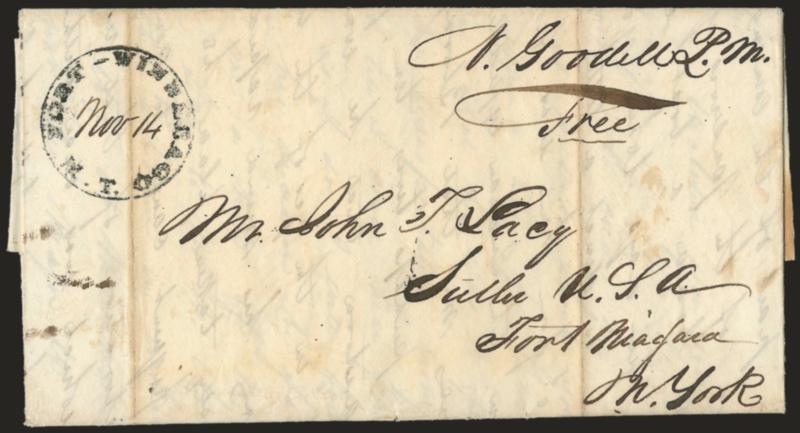 N. Goodell P. M.
Free
FORT-WINNEBAGO
Nov 14
W. T.
Mr. John T. Lacy
Sutler U. S. A.
Fort Niagara
N. York